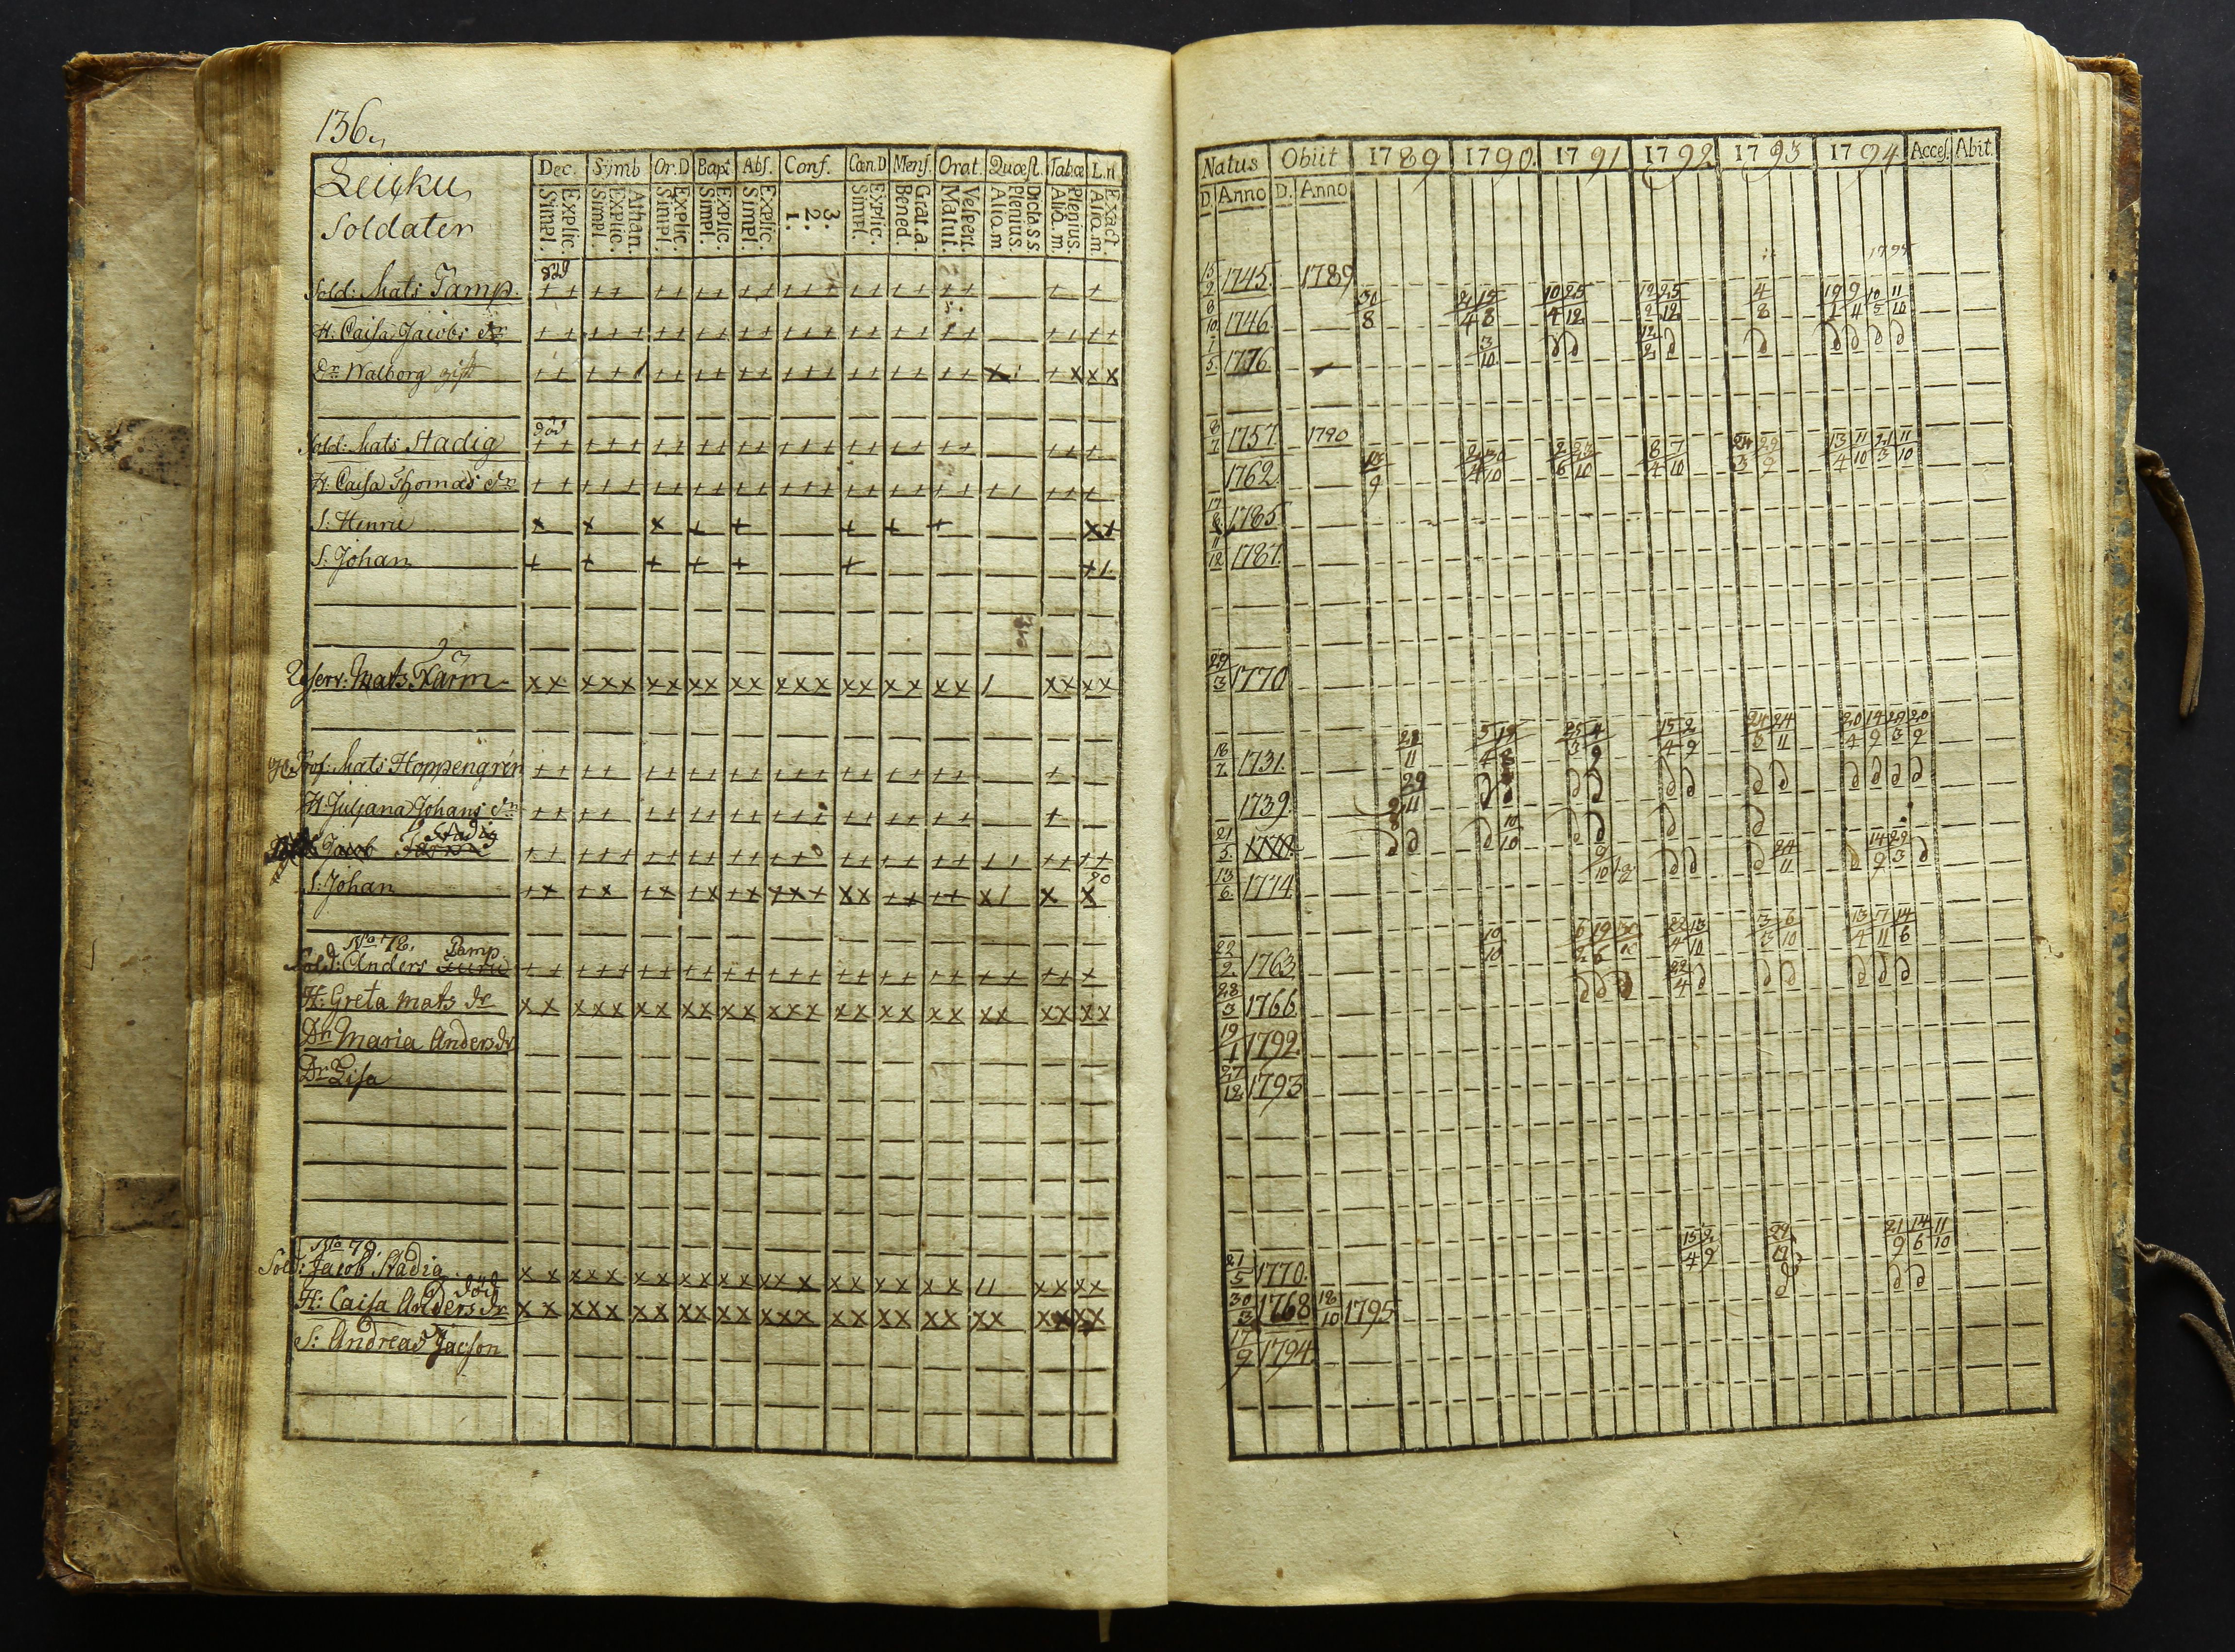 136.
Leicku
Soldater
Dec. Symb Or.D Bapt Abs. Conf. Cœn.D Mens. Orat. Quæst. Tabæ L.H
Explic. Simpl. Athan. Explic. Simpl. Explic. Simpl. Explic. Simpl. Explic. Simpl. 3. 2. 1. Explic. Simpl. Grat.a Bened. Vespert. Matut. Dicta s s Plenius. Aliq.m Plenius. Aliq.m. Exact Aliq.m.
död
Sold: Mats Tamp.
H. Caisa Jacobs dr
Dr. Walborg gift
död
Sold: Mats Stadig
H: Caisa Thomas dr
S: Henric
S: Johan
Reserv: Mats Färm
Prof: Mats Hoppengren
H. Juljana Johans dr
Stadig
Jacob
S: Johan
No 78. Pamp
Sold: Anders Furu
H: Greta Mats dr
Dr Maria Anders dr
Dr Lisa
No 79.
Sold: Jacob Stadig
död
H: Caisa Anders dr
S: Andreas Jacson
Natus Obiit 1789 1790. 1791 1792. 1793 1794 Acces. Abit.
D. Anno D. Anno
1794
15/2 1745. 1789
8/10 1746. 30/8 4/8 10/4 25/12 25/12 4/8 19/1 9/4 10/5 11/10
1/5. 1776. 3/10 12/2
8/7 1757. 1790
1762. 2/4 30/10 2/6 23/10 8/4 7/10 24/3 29/9 13/4 11/10 21/3 11/10
17/8 1785
11/12 1787.
29/3 1770
16/7 1731. 29/11 25/3 4/9 15/4 2/9 24/3 24/11 20/4 14/9 29/3 20/9
1739. 29/11
21/5 10/10
13/6 1774. 9/10 24/11 14/9 29/3
22/2 1763. 10/10 6/2 19/6 22/4 13/10 13/3 6/10 13/4 7/11 14/6
28/3 1766 22/4
19/1 1792.
27/12 1793
21/5 1770. 15/4 2/9 21/9 14/6 11/10
30/3 1768 18/10 1795
17/9 1794.